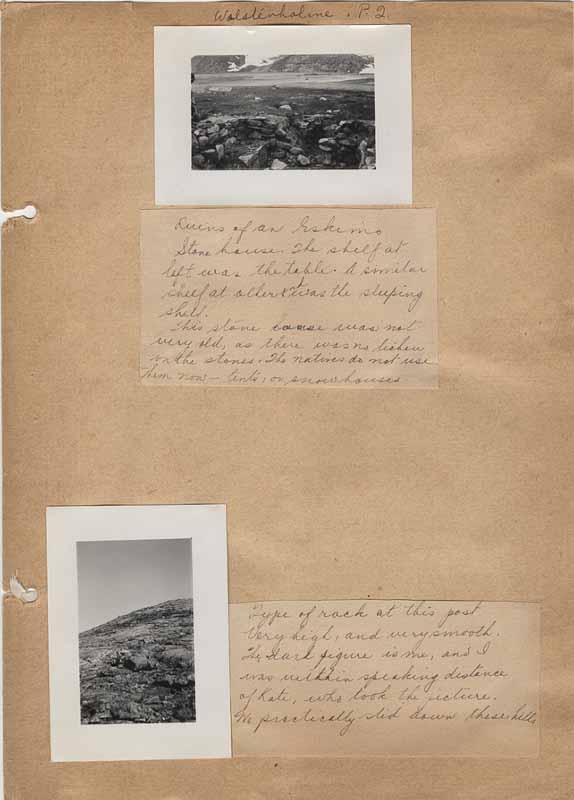 Wolstenholme . P. 2.
Ruins of an Eskimo
Stone house. The shelf at
left was the table. A similar
shelf at other was the sleeping
shelf.
This stone house was not
very old, as there was no lichen
on the stones. The natives do not use
them now — tents, or, snowhouses
Type of rock at this post
Very high, and very smooth.
The dark figure is me, and I
was within speaking distance
of Kate, who took the picture.
We practically slid down these hills